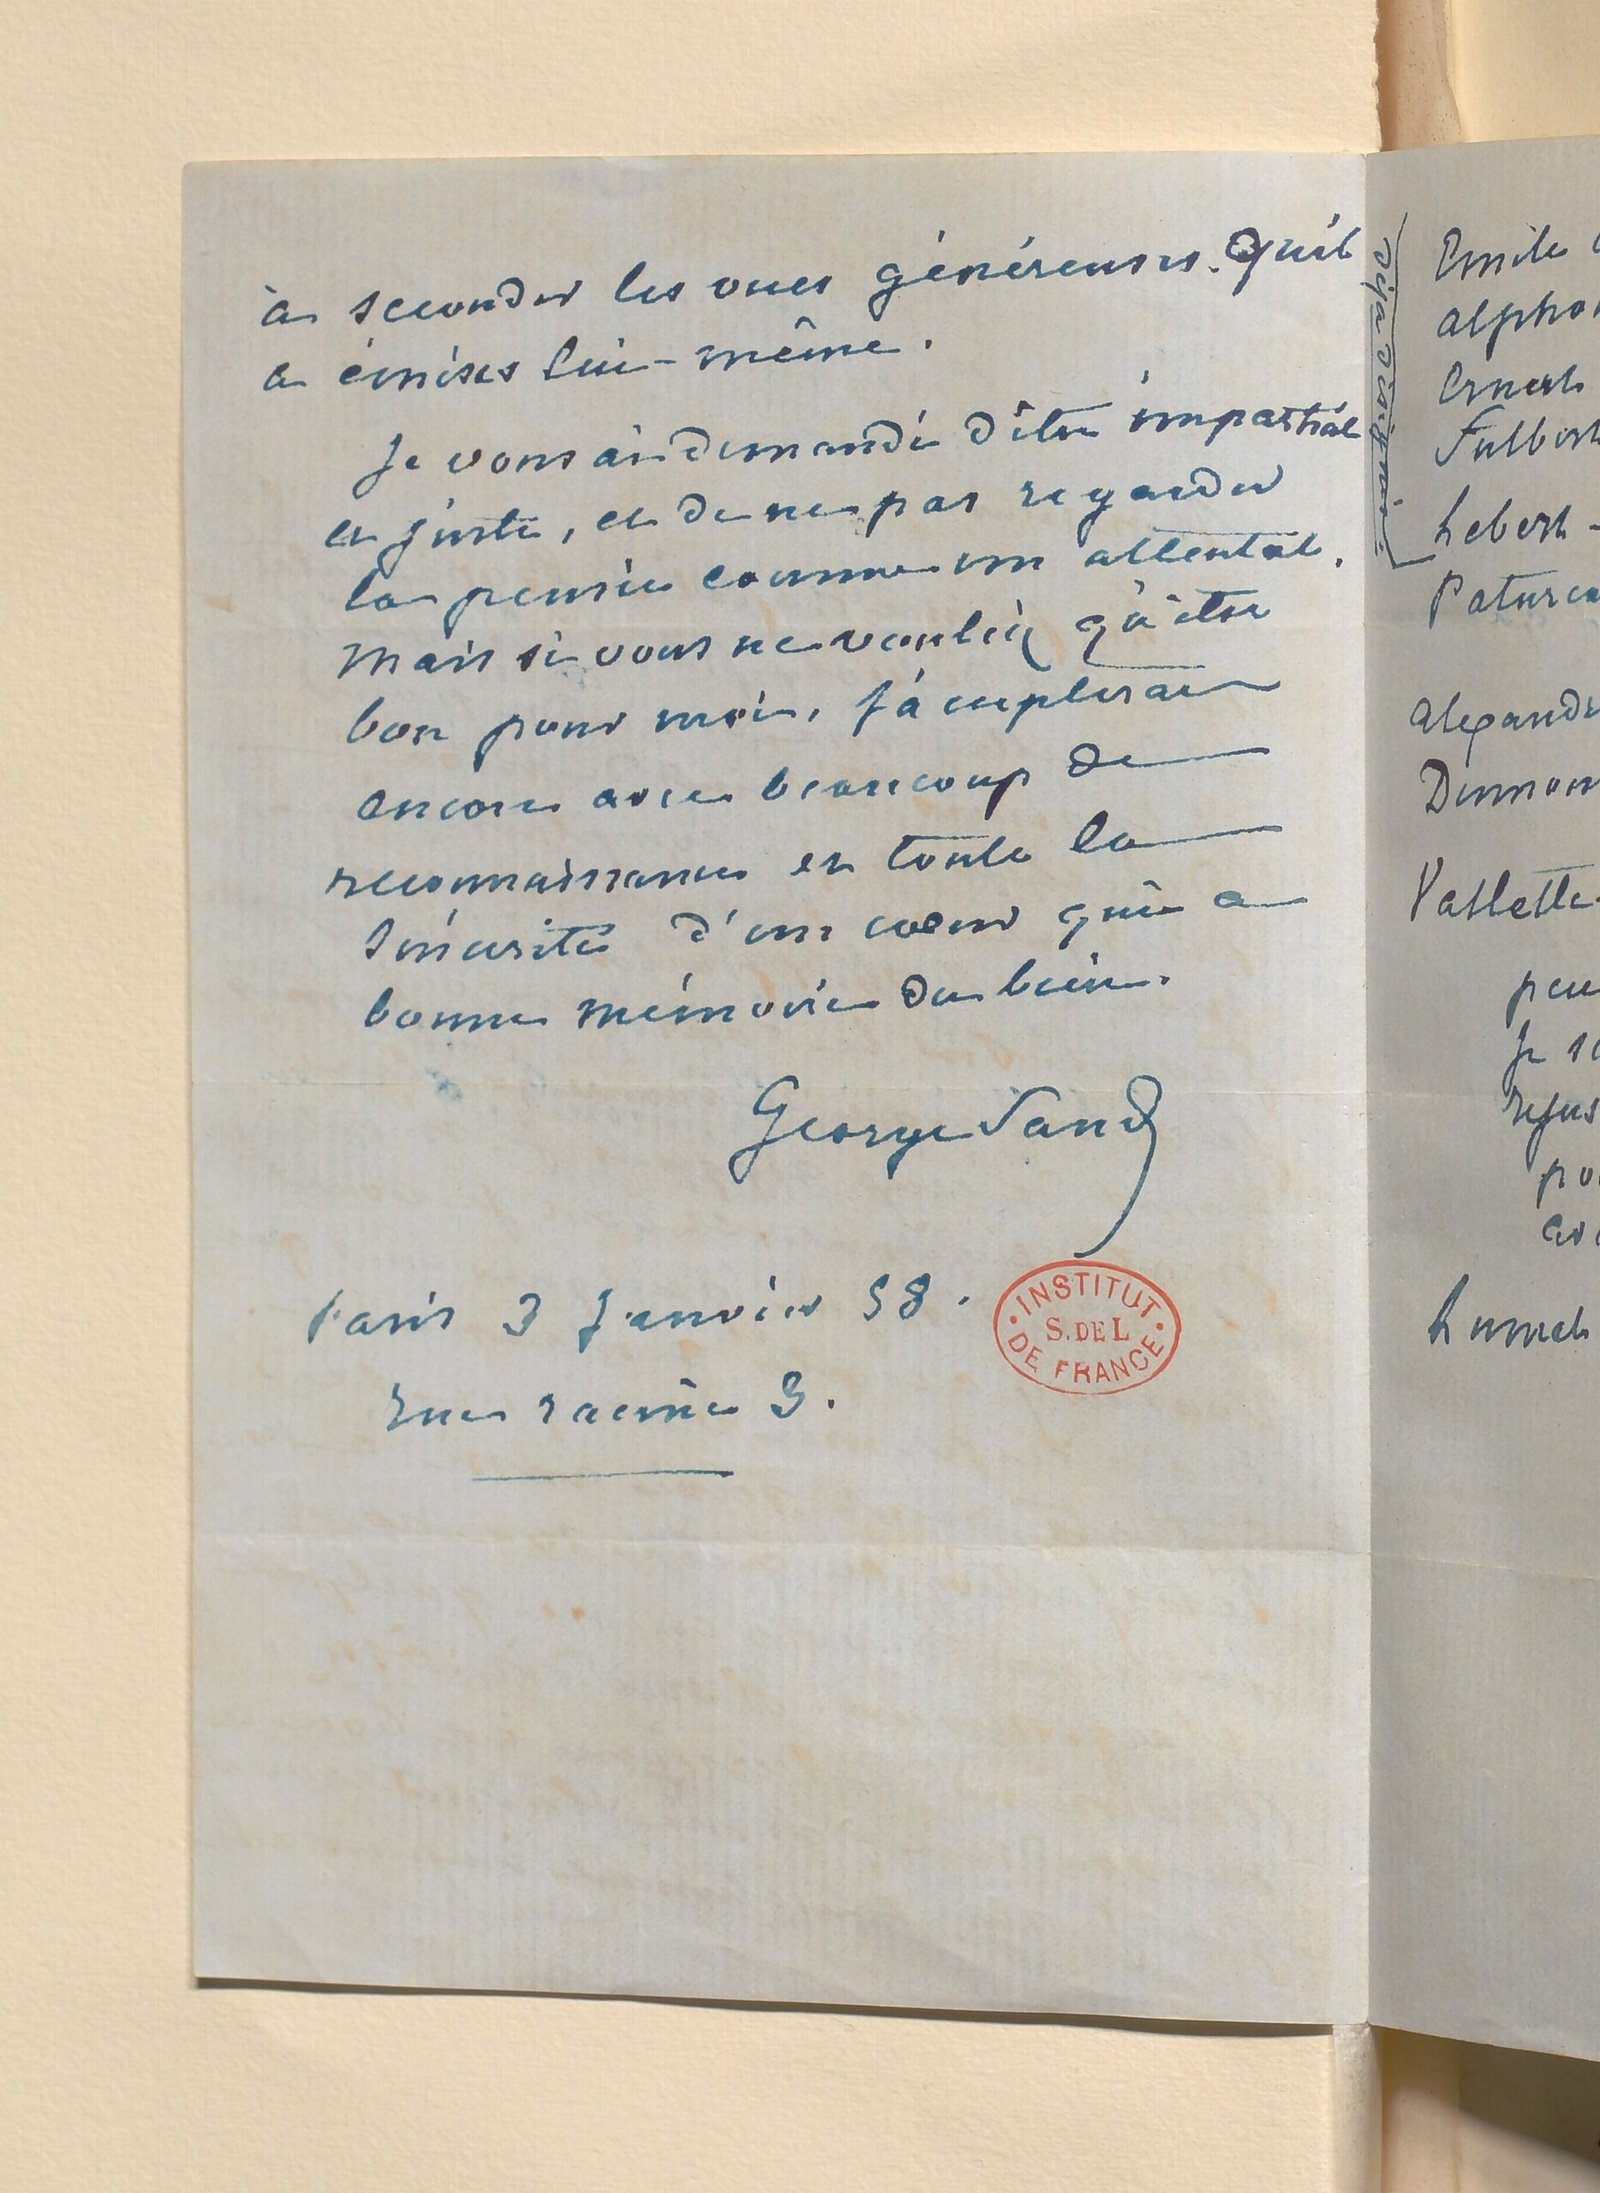 à seconder les vues généreuses qu'il
a émises lui-même.
Je vous ai demandé d'être impartial
et juste, et de ne pas regarder
la pensée comme un attentat.
Mais si vous ne vouliez qu'être
bon pour moi, j'accepterai
encore avec beaucoup de
reconnaissance et toute la
sincérité d'un coeur qui a
bonne mémoire du bien.
George Sand
Paris 3 Janvier 58.
rue racine 3.
INSTITUT
S. DE L
DE FRANCE
Emile
alpho
Ernest
Fulbert
Lebert -
Patureau
alexandr
Dumon
Vallette
peu
je
refus
po
av